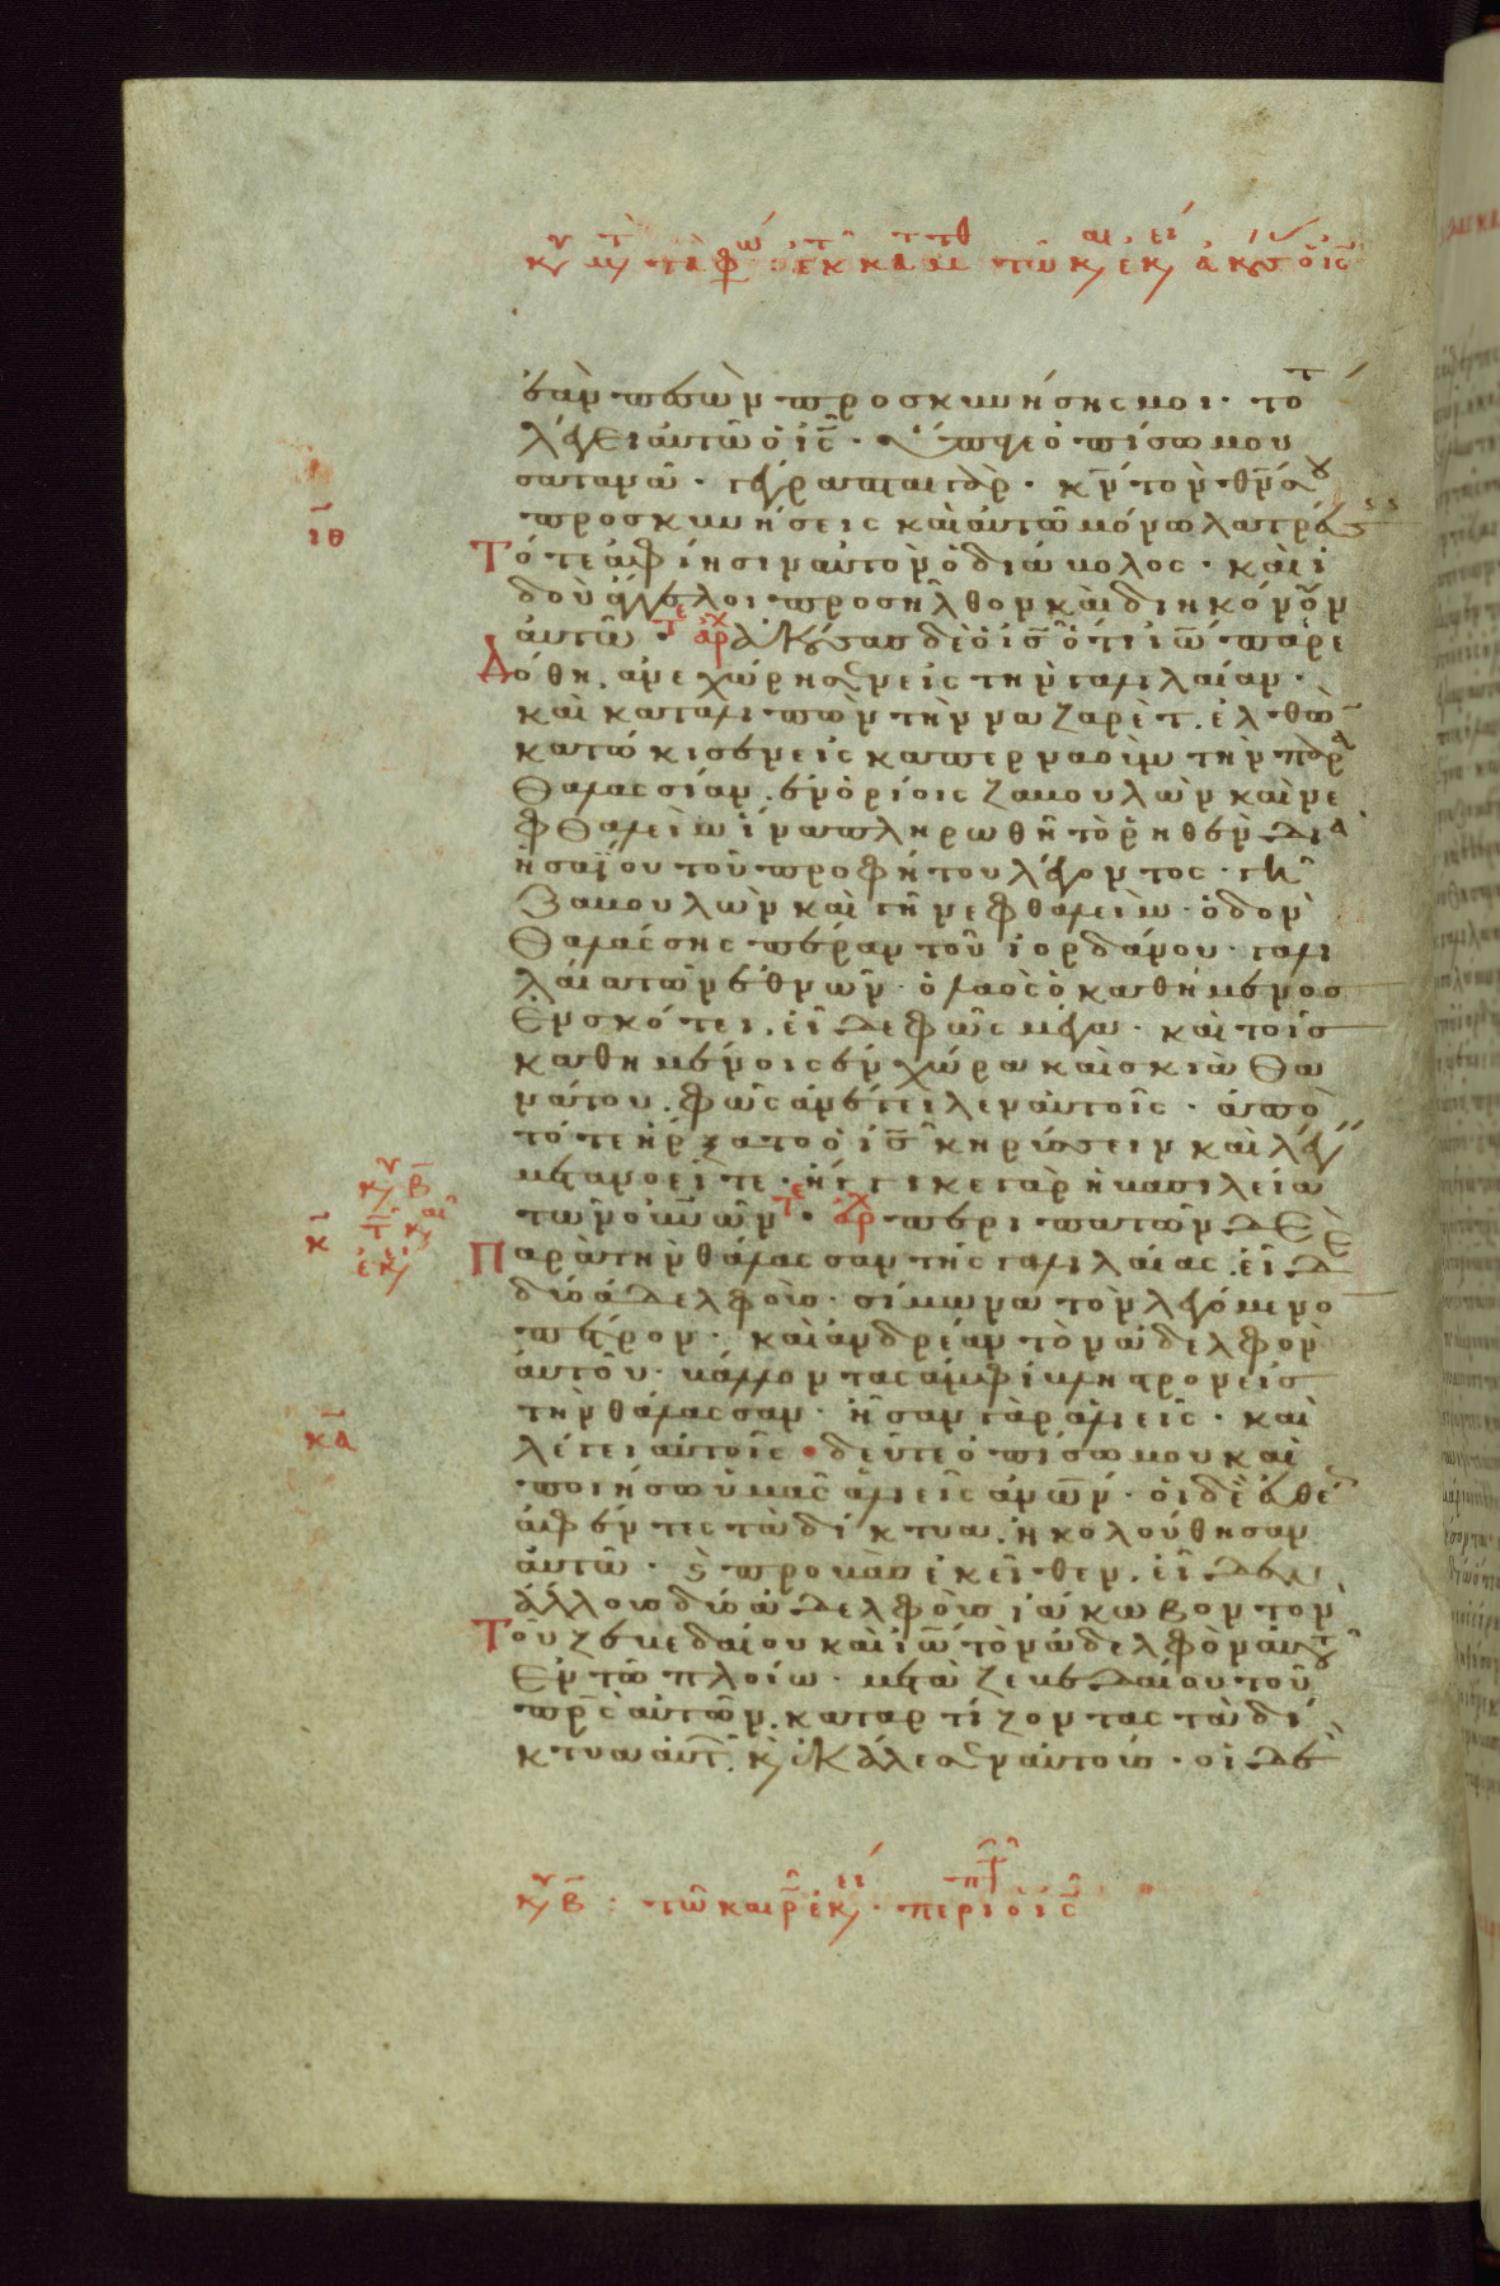 κυ μτ τὰ φῶ : ἐκ κατ ματθ τῶ κ ἐκ ἀκούσ ὁ ις
ἐὰν πεσὼν προσκυνήσης μοι · τότ
λέγει αὐτῶ ὁ ις · ὕπαγε ὀπίσω μου
σατανᾶ · γέγραπται γὰρ · κν τὸν θν σου
προσκυνήσεις καὶ αὐτῶ μόνω λατρεύσεις
ιθ
Τότε ἀφίησιν αὐτὸν ὁ διάβολος · καὶ ἰ
δοὺ ἄγγελοι προσῆλθον καὶ διηκόνουν
αὐτῶ · τε αρχ ἀκούσας δὲ ὁ ις ὅτι ιω παρε
δόθη . ἀνεχώρησεν εἰς τὴν γαλιλαίαν ·
καὶ καταλιπὼν τὴν ναζαρὲτ . ἐλθὼ
κατώκισεν εἰς καπερναοὺμ τὴν παρα
θαλασσίαν . ἐν ὁρίοις ζαβουλὼν καὶ νε
φθαλεὶμ ἵνα πληρωθῆ τὸ ῥηθὲν δια
ησαΐου τοῦ προφήτου λέγοντος · γῆ
ζαβουλὼν καὶ γῆ νεφθαλεὶμ · ὁδὸν
θαλάσσης πέραν τοῦ ἰορδάνου · γαλι
λαία τῶν ἐθνῶν · ὁ λαὸς ὁ καθήμενος
ἐν σκότει . εἶδε φῶς μέγα · καὶ τοῖς
καθημένοις ἐν χώρα καὶ σκιᾶ θα
νάτου . φῶς ἀνέτειλεν αὐτοῖς · ἀπὸ
τότε ἤρξατο ὁ ις κηρύσσειν καὶ λέγ
μετανοεῖτε · ἤγγικε γὰρ ἡ βασιλεία
τῶν οὐνῶν τε · αρχ περιπατῶν δὲ
κ
κυ β
τ καιρ
ἐκ
Παρὰ τὴν θάλασσαν τῆς γαλιλαίας . εἶδε
δύο ἀδελφοὺς · σίμωνα τὸν λεγόμενο
πέτρον · καὶ ἀνδρέαν τὸν ἀδελφὸν
αὐτοῦ · βάλλοντας ἀμφίβληστρον εἰς
τὴν θάλασσαν · ἦσαν γὰρ ἁλιεῖς · καὶ
κα
λέγει αὐτοῖς · δεῦτε ὀπίσω μου καὶ
ποιήσω ὑμᾶς ἁλιεῖς ἀνων · οἱ δὲ εὐθέ
ἀφέντες τὰ δίκτυα . ἠκολούθησαν
αὐτῶ · καὶ προβὰς ἐκεῖθεν . εἶδεν
ἄλλους δύο ἀδελφοὺς ἰάκωβον τὸν
Τοῦ ζεβεδαίου καὶ ιω τὸν ἀδελφὸν αὐτοῦ
ἐν τῶ πλοίω · μετὰ ζεβεδαίου τοῦ
πρς αὐτῶν . καταρτίζοντας τὰ δί
κτυα αὐτ . κ ἐκάλεσεν αὐτοὺς · οἱ δὲ
κυ β : τῶ καιρ ἐκ · περιπτ ὁ ις